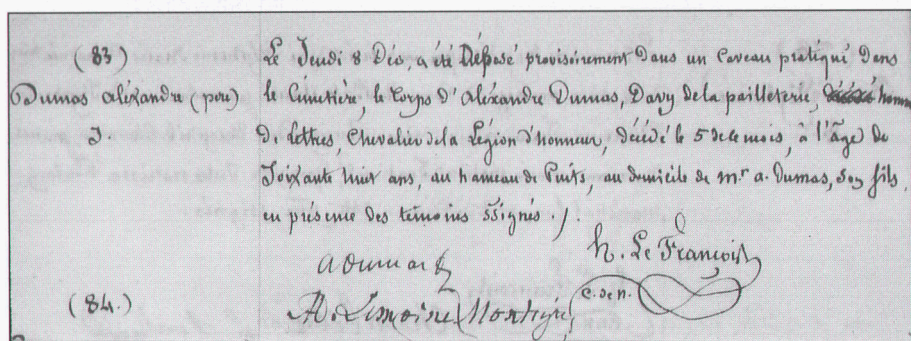 (83)
Dumas Alexandre (père)
Le Jeudi 8 Déc, a été Déposé provisoirement dans un Caveau pratiqué dans
le Cimetière, le Corps d'Alexandre Dumas, Davy de la pailleterie homme
de lettres, Chevalier de la Légion d'honneur, décédé le 5 de ce mois, à l'âge de
Soixante huit ans, au hameau de Puits, au domicile de mr. a. Dumas, Son fils,
en présence des témoins SSignés /.
a Dumas f
h. Le François
c. de n.
Ad. Lemoine Montigny
(84.)